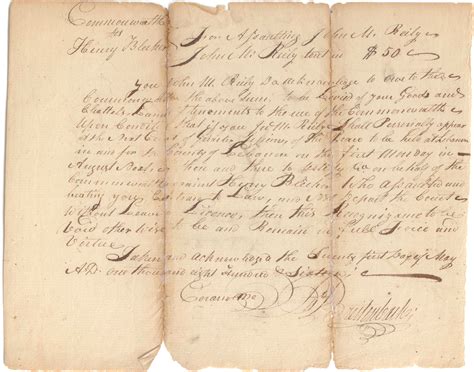 Commonwealth
vs
Henry Bleeker
For Assaulting John M. Reily
John M. Reily tent in $50
you John M. Reily Do Acknowledge to owe to the
Commonwealth the above Sum, to be Levied of your Goods and
Chattels Lands Tenements to the use of the Commonwealth
Upon Condition that if you John M. Reily Shall Personally appear
at the next Court of Quarter Sessions of the Peace to be held at Lebanon
in and for the County of Lebanon on the first Monday in
August Next then and there to testify on behalf of the
Commonwealth against Henry Bleeker Who Assaulted and
beating you Contrary to Law, and not Depart the Court
Without Leave Licence, then this Recognizance to be
Void otherwise to be and Remain in full force and
Virtue
Taken and acknowledged the Twenty first Day of May
AD. one thousand eight hundred &
Coram me